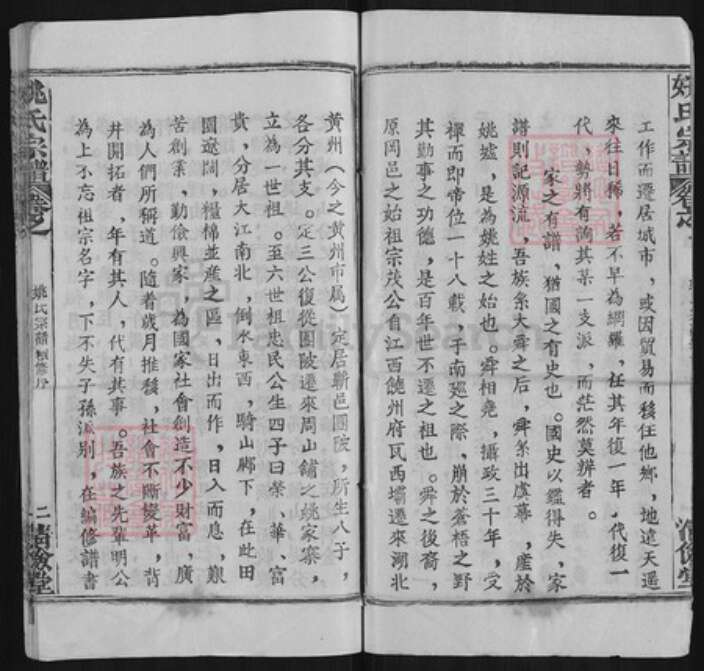 姚氏宗譜 卷之
工作而遷居城市，或因貿易而移住他鄉，地遠天遥
來往日稀，若不早為網羅，任其年復一年，代復一
代，勢將有詢其某一支派，而茫然莫辨者。
家之有譜，猶國之有史也。國史以鑑得失，家
譜則記源流，吾族系大舜之后，舜系出虞幕，產於
姚墟，是為姚姓之始也。舜相堯，攝政三十年，受
禪而即帝位一十八載，于南廵之際，崩於蒼梧之野
其勤事之功德，是百年世不遷之祖也。舜之後裔，
原岡邑之始祖宗茂公自江西饒州府瓦西壩遷來湖北
黄州（今之黄州市属）定居蘄邑團陂，所生八子，
各分其支。定三公復從團陂遷來周山鋪之姚家寨，
立為一世祖。至六世祖忠民公生四子曰榮、華、富
貴，分居大江南北，倒水東西，騎山脚下，在此田
園遼闊，糧棉並產之區，日出而作，日入而息，艱
苦創業，勤儉興家，為國家社會創造不少財富，廣
為人們所稱道。隨着歲月推移，社會不斷變革，背
井開拓者，年有其人，代有其事。吾族之先輩明公
為上不忘祖宗名字，下不失子孫派别，在編修譜書
姚氏宗譜 卷之
姚氏宗譜續修序
二